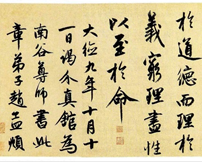 於道德而理於
義窮理盡性
以至於命
大德九年十月十
一日謁全真館為
南谷尊師書此
章弟子趙孟頫